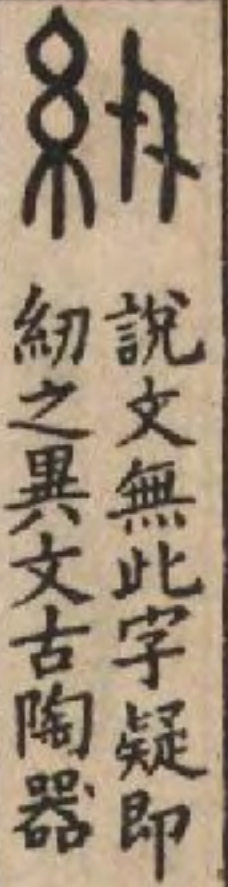 說文無此字疑即
紉之異文古陶器